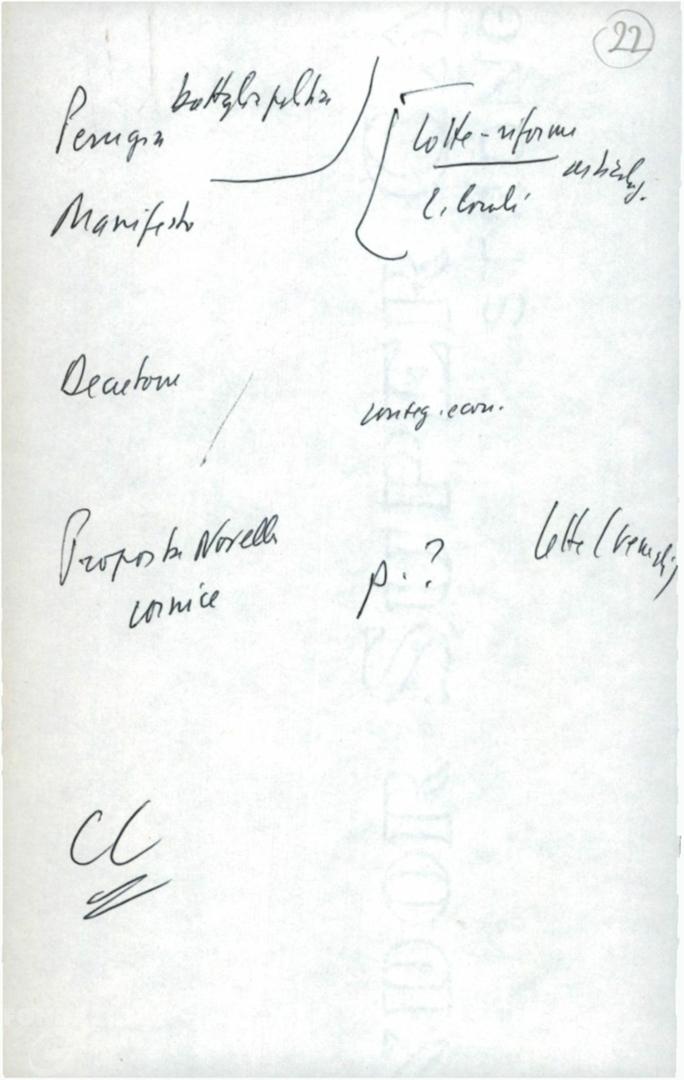 22
Perugia battaglia politica
Manifesto
lotte - riforme
E. Locali
Decretone
conteg. econ.
Proposta Novelli
cornice
p. ?
lotte (
CC